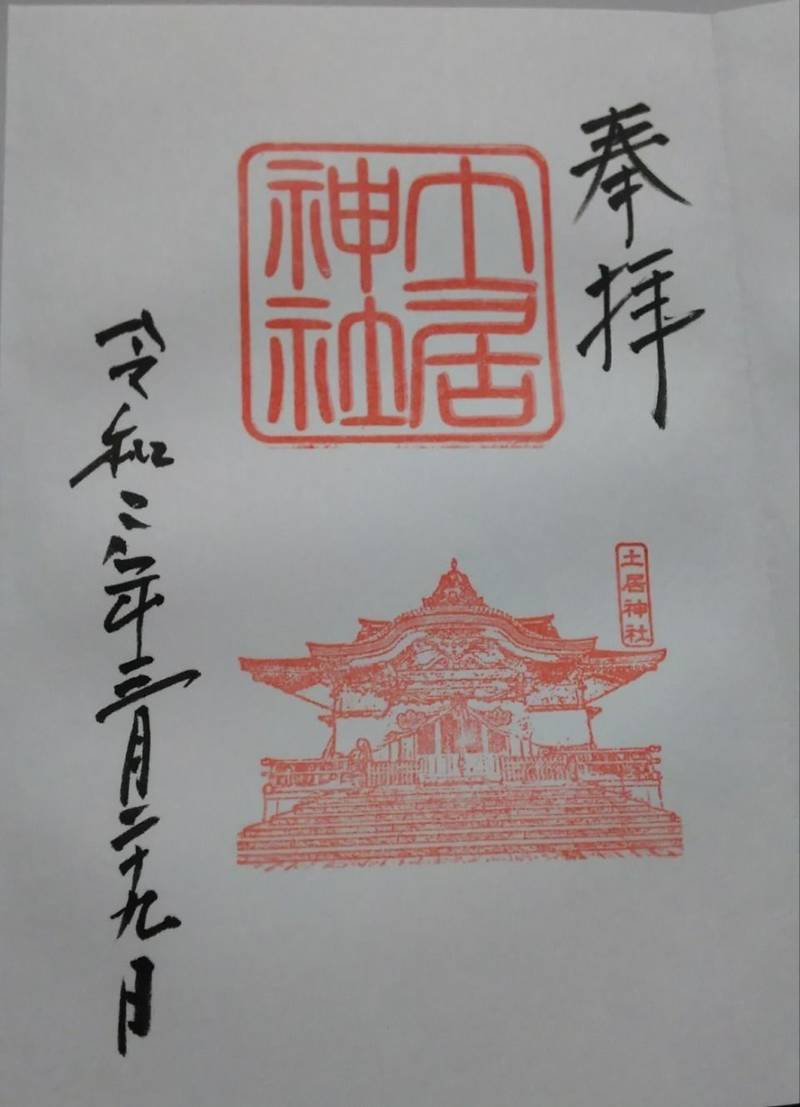 奉拝
土居
神社
土居神社
令和二年三月二十九日